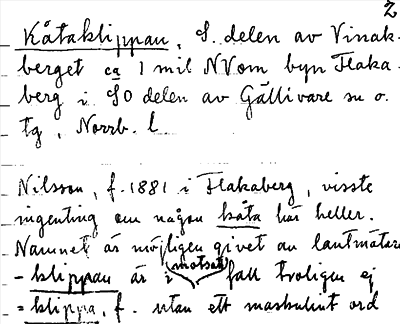 2
Kåtaklippan, S. delen av Vinak-
berget ca 1 mil NV om byn Flaka-
berg i SO delen av Gällivare sn o.
tg, Norrb. l.
Nilsson, f. 1881 i Flakaberg, visste
ingenting om någon kåta här heller.
Namnet är möjligen givet av lantmätare
- klippan är i (motsatt) fall troligen ej
= klippa, f. utan ett maskulint ord